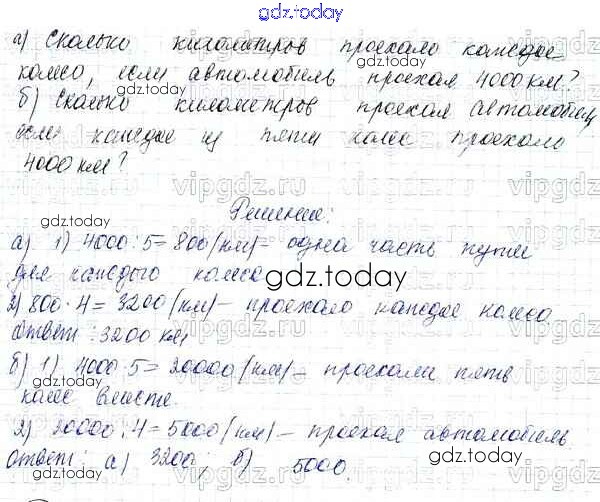 gdz.today
а) Сколько километров проехало каждое
колесо, если автомобиль проехал 4000 км?
gdz.today
б) Сколько километров проехал автомобиль,
если каждое из пяти колёс проехало
4000 км?
vipgdz.ru vipgdz.ru vipgdz
gdz.today
Решение:
а) 1) 4000 : 5 = 800 (км) – одна часть пути
для каждого колеса
gdz.today
2) 800 · 4 = 3200 (км) – проехало каждое колесо
Ответ : 3200 км
gdz.today
б) 1) 4000 · 5 = 20000 (км) – проехали пять
gdz.today
колёс вместе.
2) 20000 : 4 = 5000 (км) – проехал автомобиль
Ответ : а) 3200 ; б) 5000.
gdz.today gdz.today